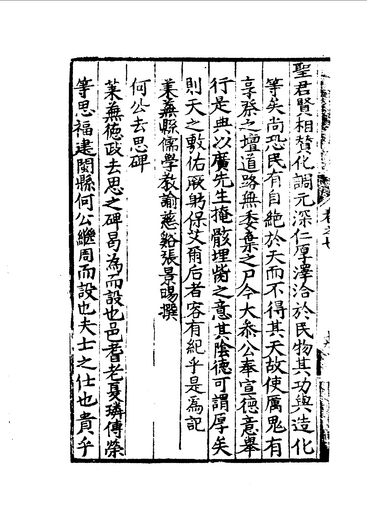 聖君賢相替化調元深仁厚澤洽於民物其功與造化
等矣尚恐民有自絕於天而不得其天故使厲鬼有
享祭之壇道路無委棄之尸今大叅公奉宣德意舉
行是典以廣先生掩骸埋胔之意其陰德可謂厚矣
則天之敷佑厥躬保艾爾后者容有紀乎是為記
萊蕪縣儒學教諭慈谿張景暘撰
何公去思碑
萊蕪德政去思之碑曷為而設也邑耆老夏璘傅榮
等思福建閩縣何公繼周而設也夫士之仕也貴乎
卷之七